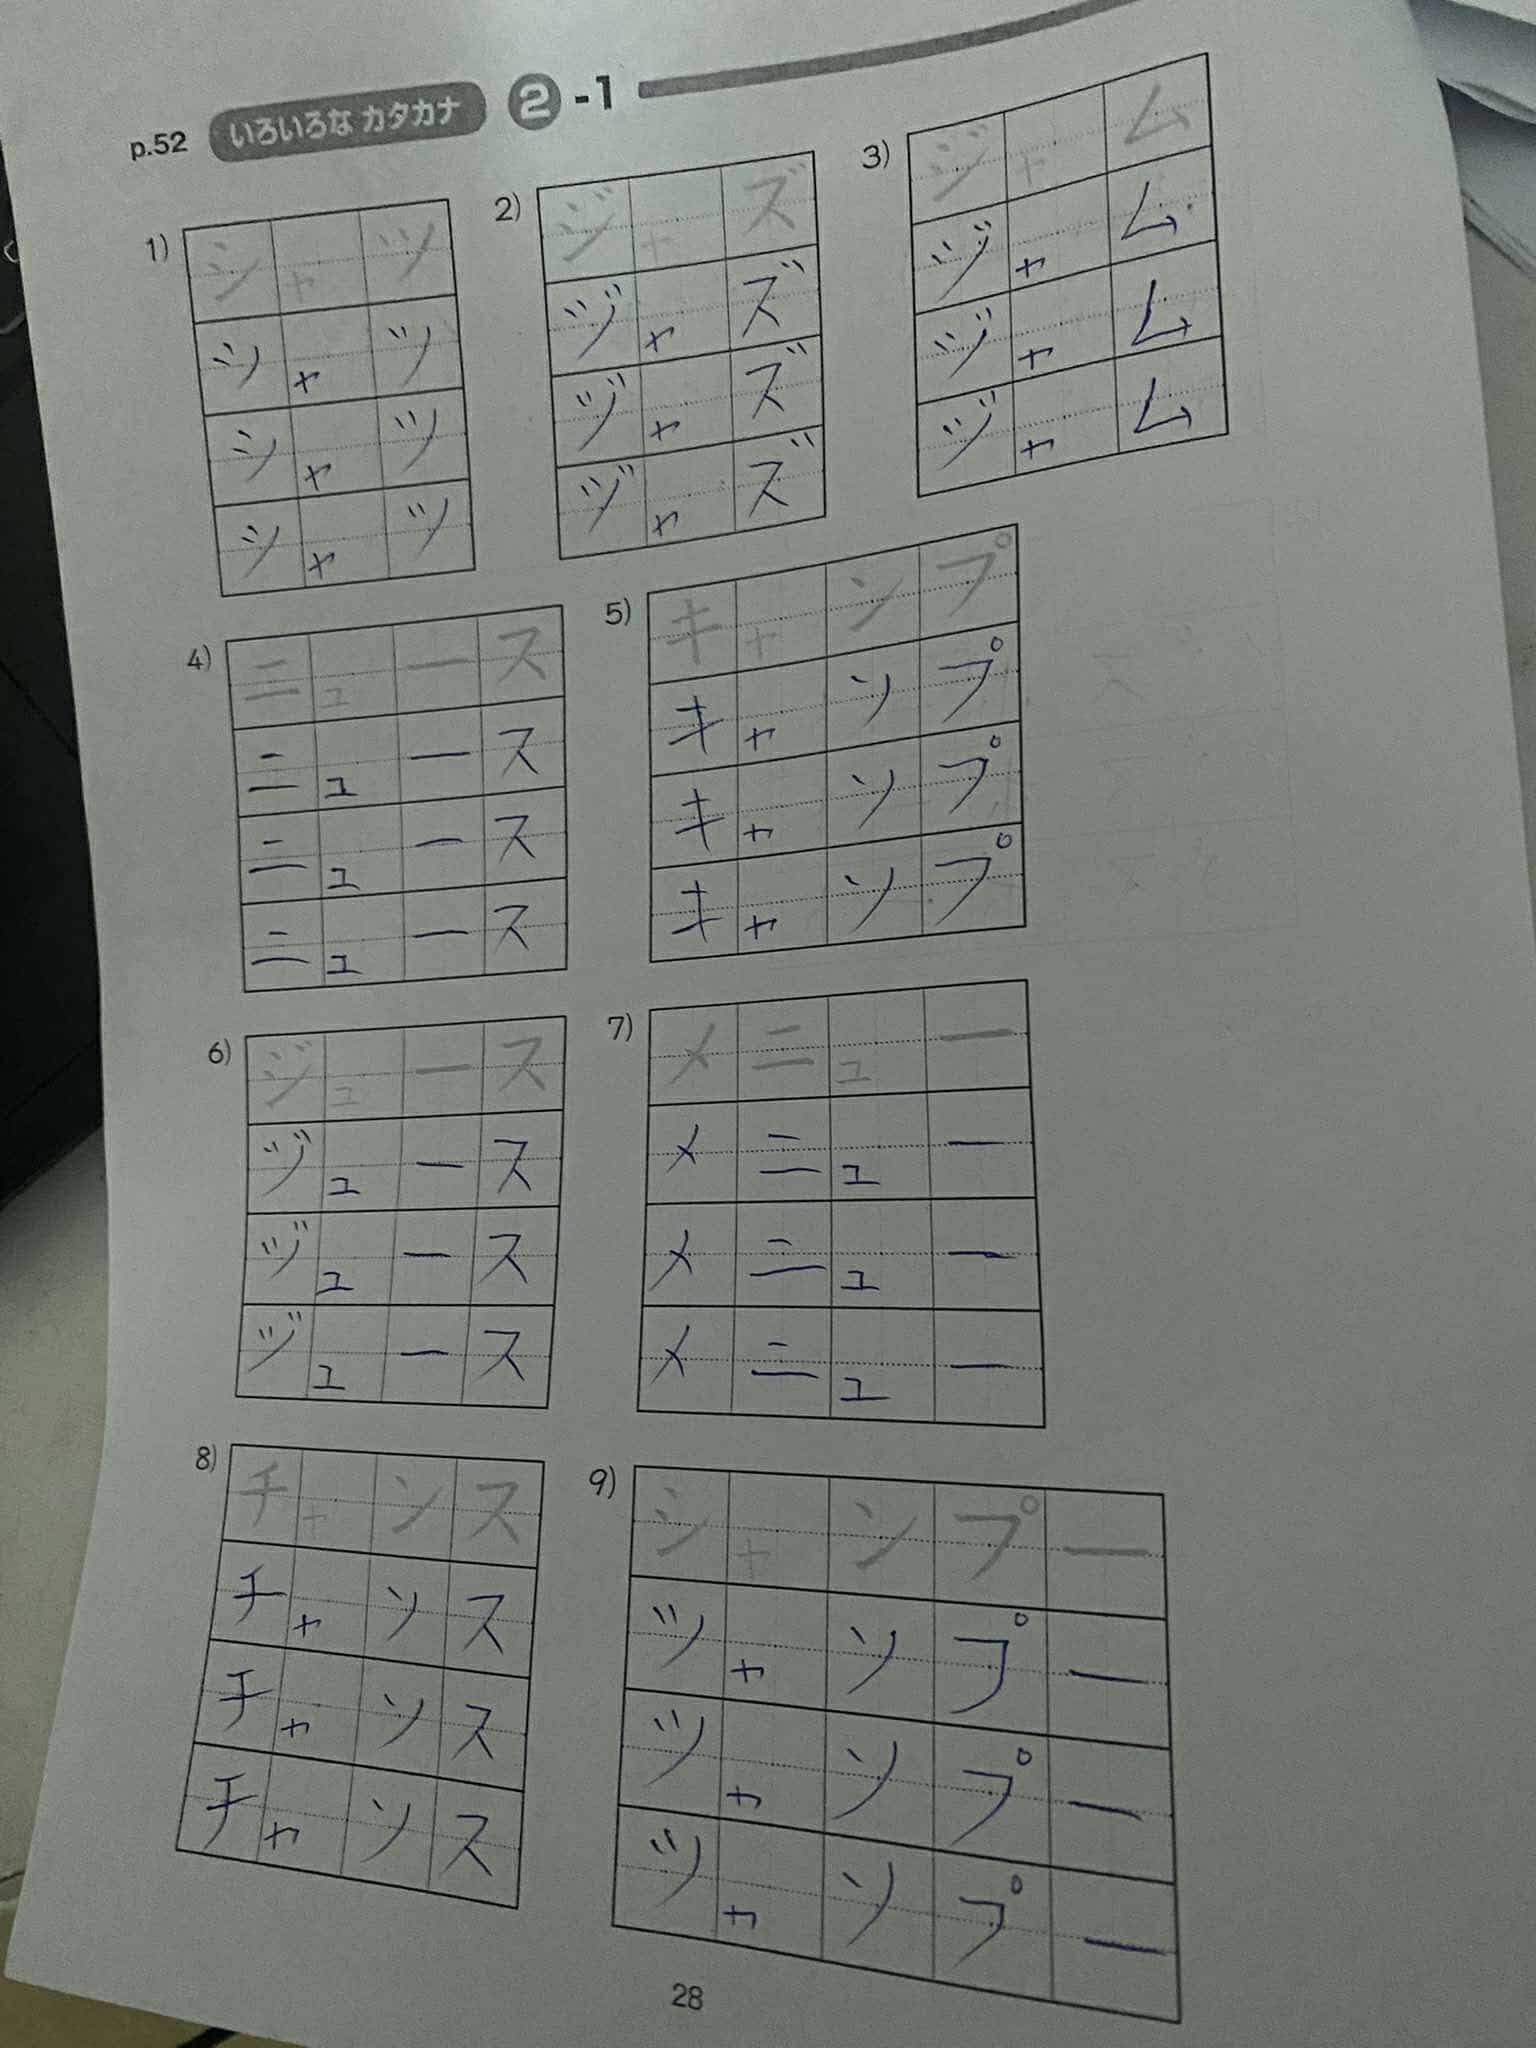 p.52 いろいろな カタカナ ②-1
1)
シャツ
シャツ
シャツ
シャツ
2)
ジャズ
ジャズ
ジャズ
ジャズ
3)
ジャム
ジャム
ジャム
ジャム
4)
ニュース
ニュース
ニュース
ニュース
5)
キャンプ
キャンプ
キャンプ
キャンプ
6)
ジュース
ジュース
ジュース
ジュース
7)
メニュー
メニュー
メニュー
メニュー
8)
チャンス
チャンス
チャンス
チャンス
9)
シャンプー
シャンプー
シャンプー
シャンプー
28